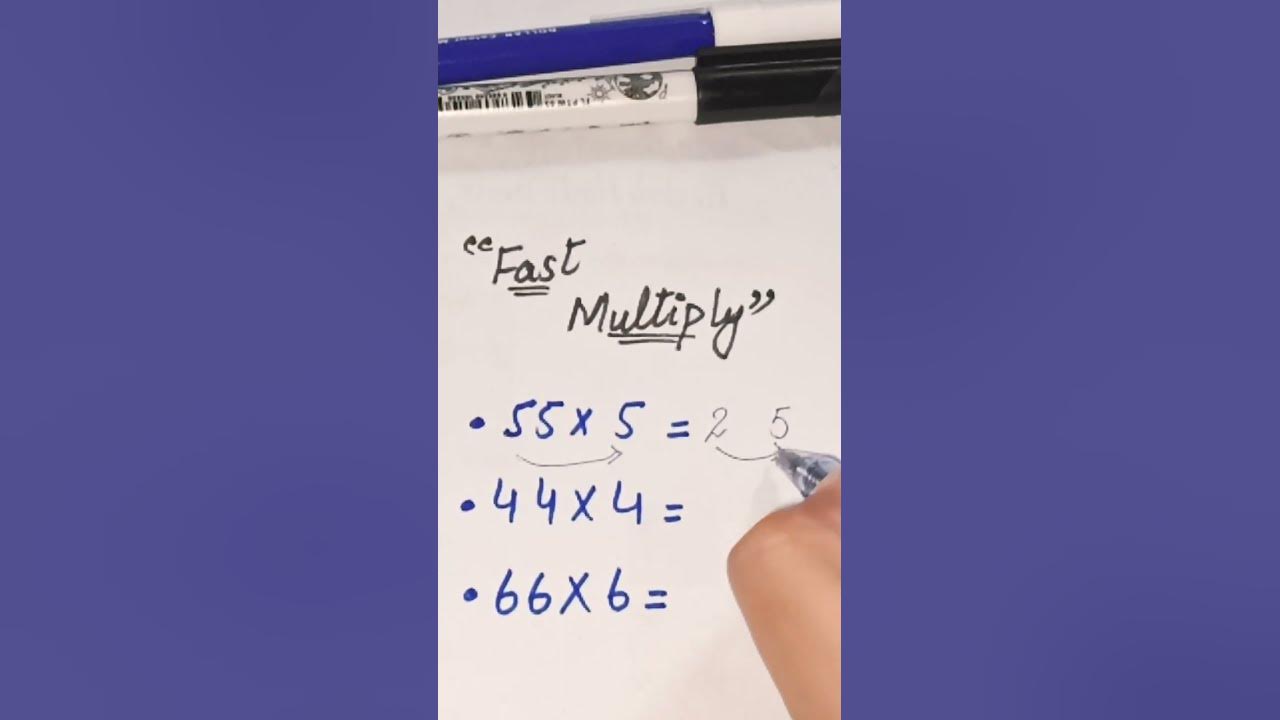 “Fast
Multiply”
• 55 x 5 = 2 5
• 44 x 4 =
• 66 x 6 =